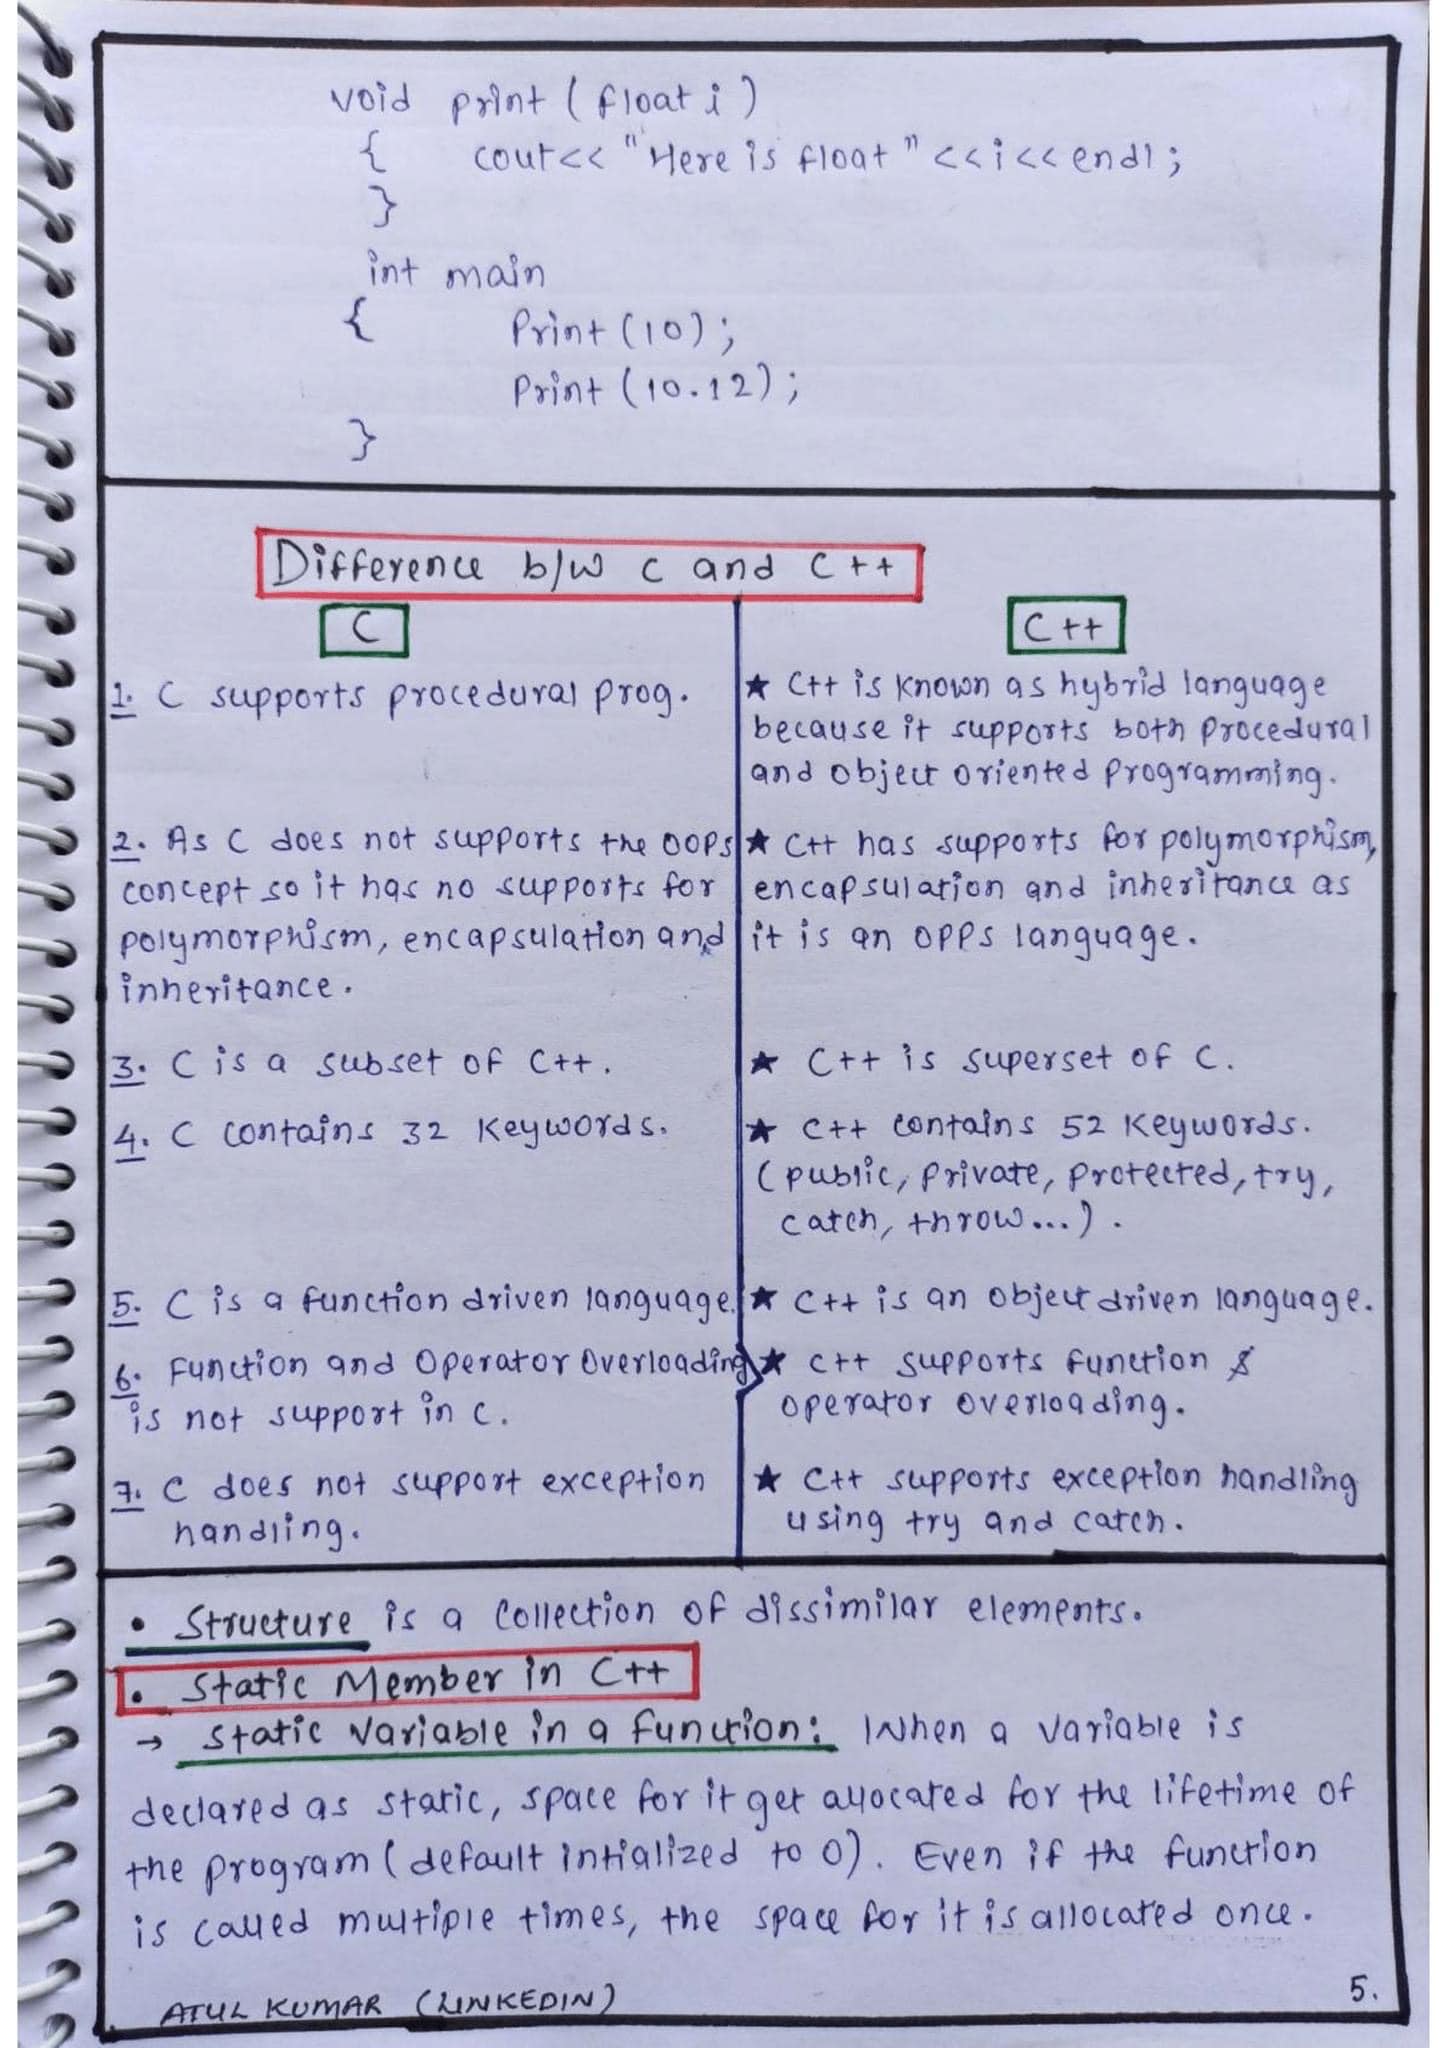 void print ( float i )
{ cout<< "Here is float " <<i<< endl ;
}
int main
{ Print (10) ;
Print (10.12) ;
}
Difference b/w C and C++
C
C ++
1. C supports procedural prog.
★ C++ is known as hybrid language
because it supports both Procedural
and object oriented Programming.
2. As C does not supports the OOPs
concept so it has no supports for
polymorphism, encapsulation and
inheritance.
★ C++ has supports for polymorphism,
encapsulation and inheritance as
it is an OPPs language.
3. C is a subset of C++.
★ C++ is superset of C.
4. C contains 32 Keywords.
★ C++ contains 52 Keywords.
( public, Private, Protected, try,
catch, throw...) .
5. C is a function driven language.
★ C++ is an object driven language.
6. Function and Operator Overloading
is not support in C.
★ C++ supports function &
operator overloading.
7. C does not support exception
handling.
★ C++ supports exception handling
using try and catch.
• Structure is a Collection of dissimilar elements.
• Static Member in C++
→ Static Variable in a function: When a variable is
declared as static, space for it get allocated for the lifetime of
the program ( default intialized to 0). Even if the function
is called multiple times, the space for it is allocated once.
ATUL KUMAR (LINKEDIN)
5.